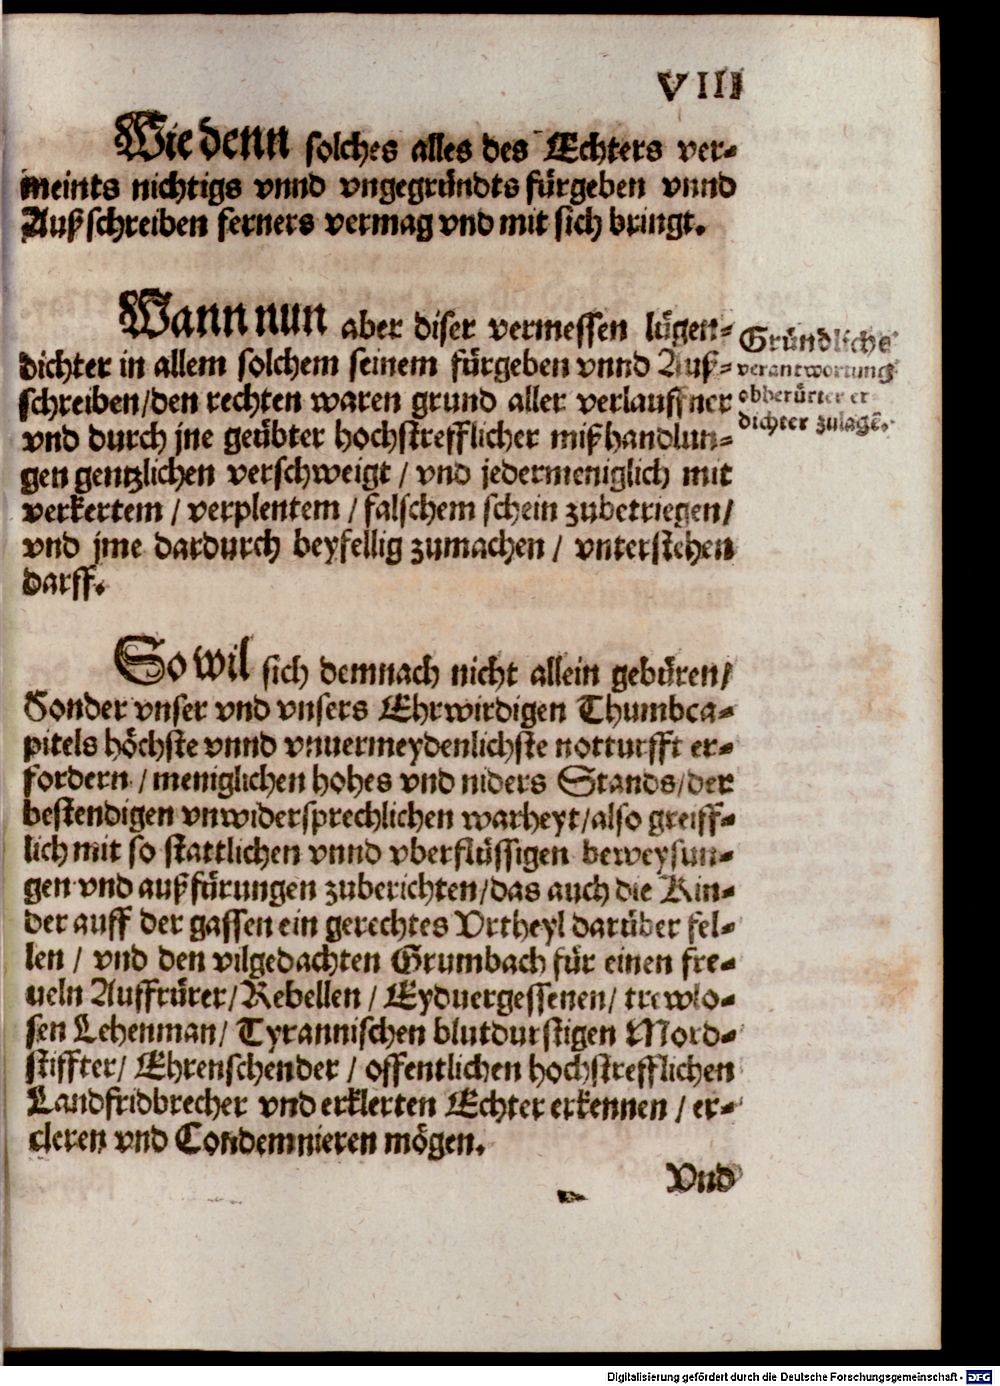 VIII
Wie denn solches alles des Echters ver⸗
meints nichtigs vnnd vngegründts fürgeben vnnd
Außschreiben ferners vermag vnd mit sich bringt.
Wann nun aber diser vermessen lügen⸗
dichter in allem solchem seinem fürgeben vnnd Auß⸗
schreiben/den rechten waren grund aller verlauffner
vnd durch jne geübter hochstrefflicher mißhandlun⸗
gen gentzlichen verschweigt / vnd jedermeniglich mit
verkertem / verplentem / falschem schein zubetriegen/
vnd jme dardurch beyfellig zumachen / vnterstehen
darff.
Gründliche
verantwortung
obberürter er
dichter zulagē.
So wil sich demnach nicht allein gebüren/
Sonder vnser vnd vnsers Ehrwirdigen Thumbca⸗
pitels höchste vnnd vnuermeydenlichste notturfft er⸗
fordern / meniglichen hohes vnd niders Stands/der
bestendigen vnwidersprechlichen warheyt/also greiff⸗
lich mit so stattlichen vnnd vberflüssigen beweysun⸗
gen vnd außfürungen zuberichten/das auch die Kin⸗
der auff der gassen ein gerechtes Vrtheyl darüber fel⸗
len / vnd den vilgedachten Grumbach für einen fre⸗
ueln Auffrürer/Rebellen / Eyduergessenen/ trewlo⸗
sen Lehenman/ Tyrannischen blutdurstigen Mord⸗
stiffter/ Ehrenschender / offentlichen hochstrefflichen
Landfridbrecher vnd erklerten Echter erkennen / er⸗
cleren vnd Condemnieren mögen.
Vnd
Digitalisierung gefördert durch die Deutsche Forschungsgemeinschaft - DFG